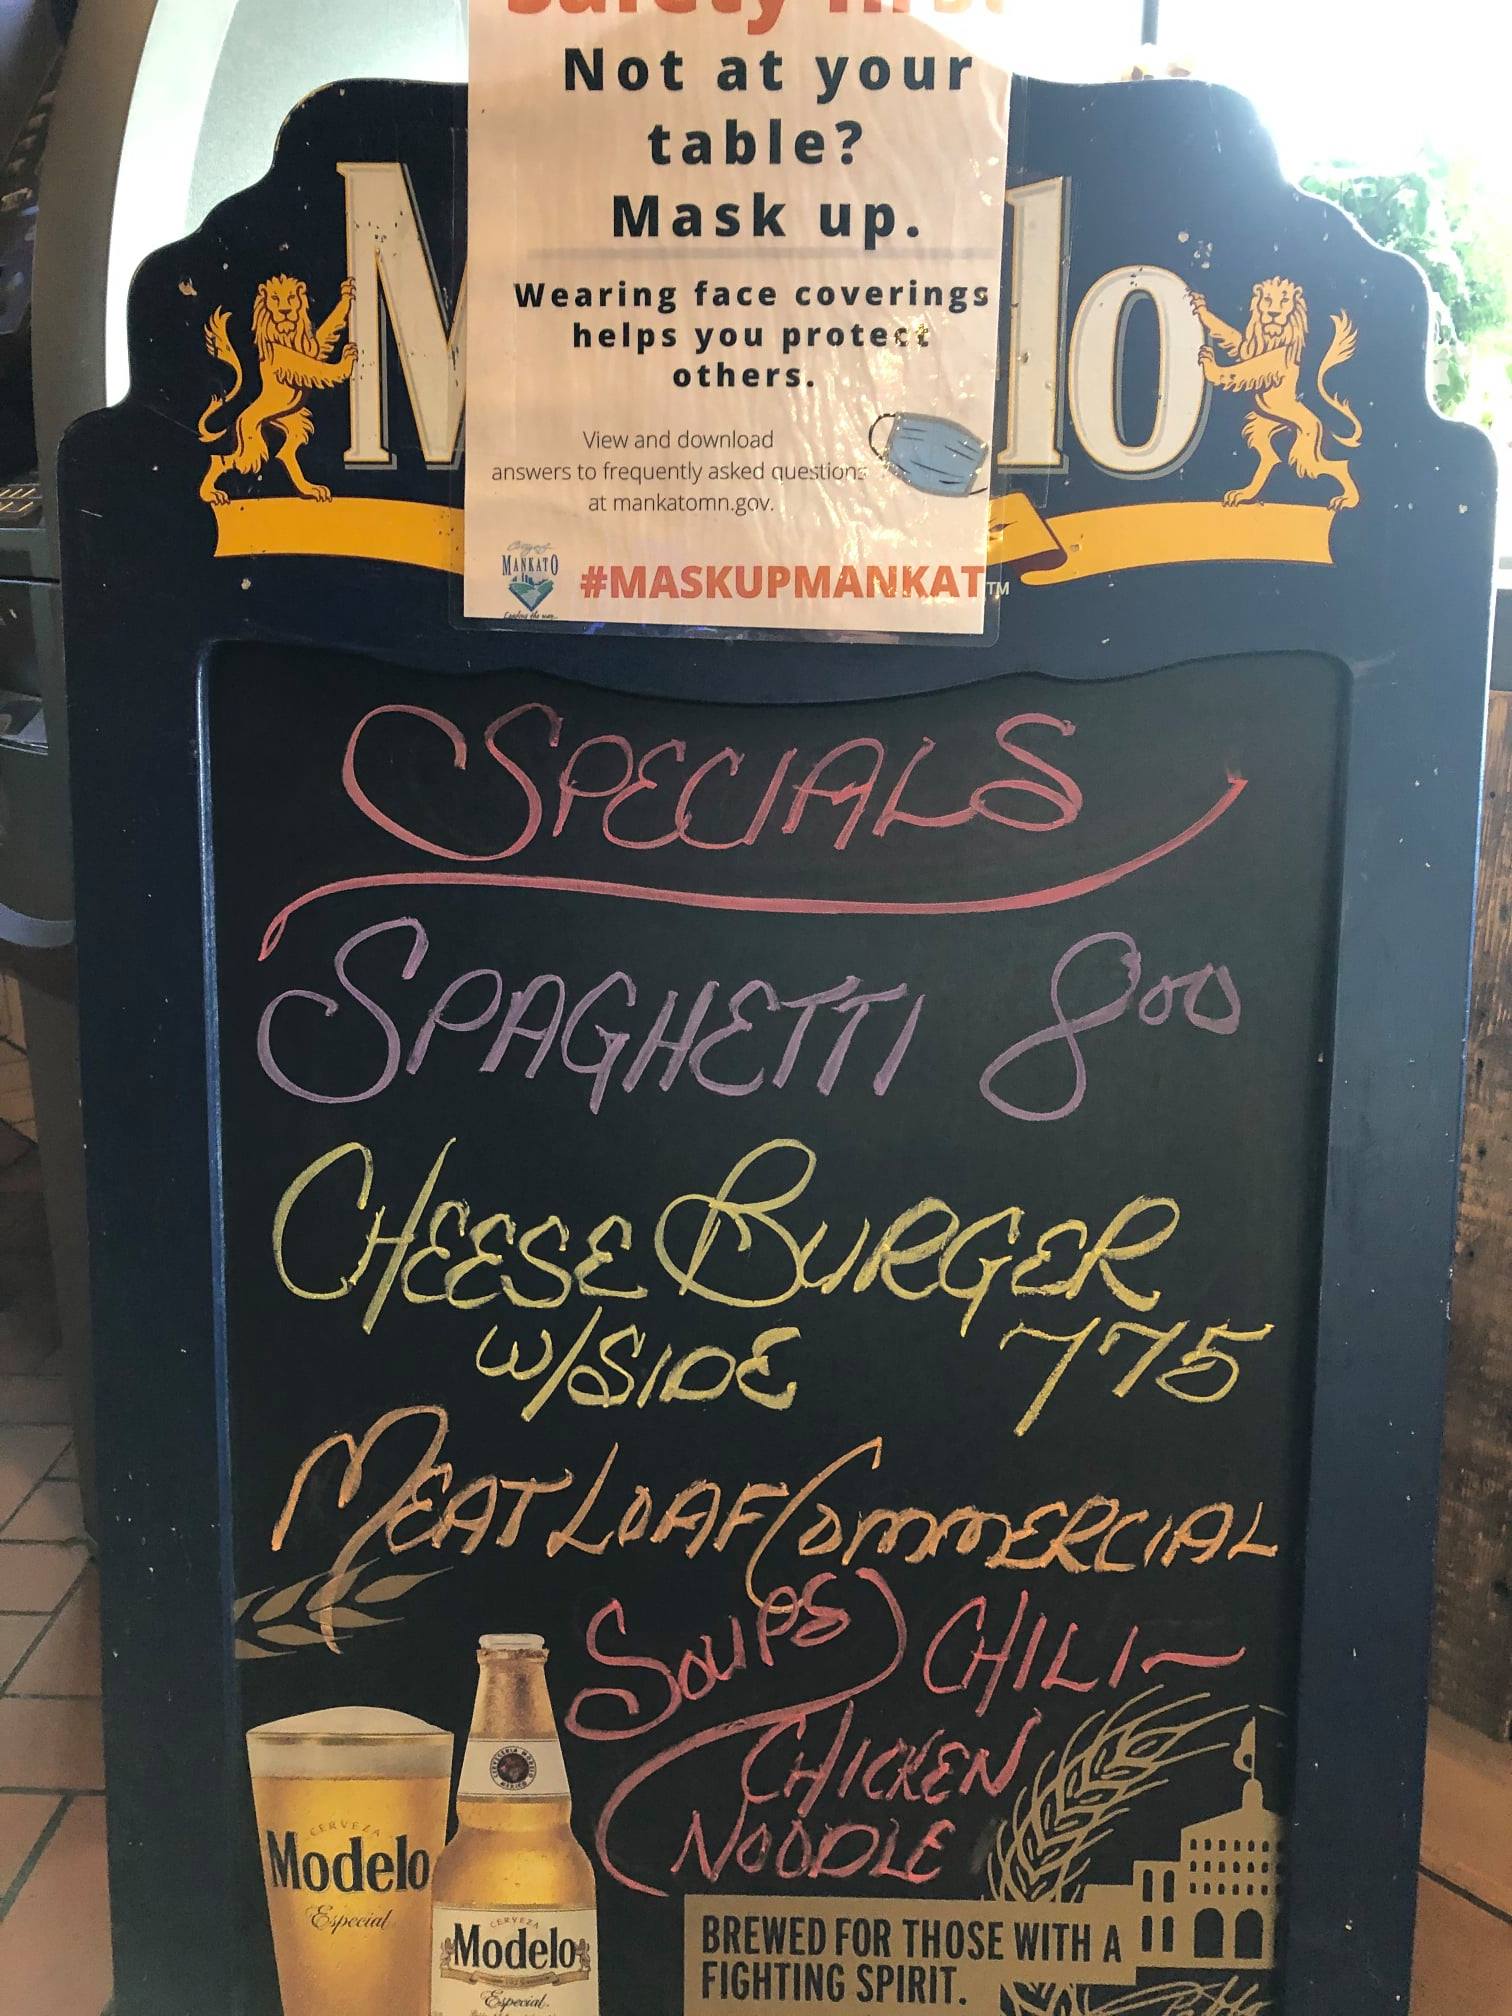 Safety first
Not at your
table?
Mask up.
Wearing face coverings
helps you protect
others.
View and download
answers to frequently asked questions
at mankatomn.gov.
City of
MANKATO
Leading the way...
#MASKUPMANKAT
TM
M lo
SPECIALS
SPAGHETTI 800
CHEESE BURGER
W/SIDE 775
MEAT LOAF COMMERCIAL
SOUPS) CHILI~
CHICKEN
NOODLE
CERVEZA
Modelo
Especial
CERVECERIA MODELO
MEXICO
CERVEZA
Modelo
Especial
BREWED FOR THOSE WITH A
FIGHTING SPIRIT.